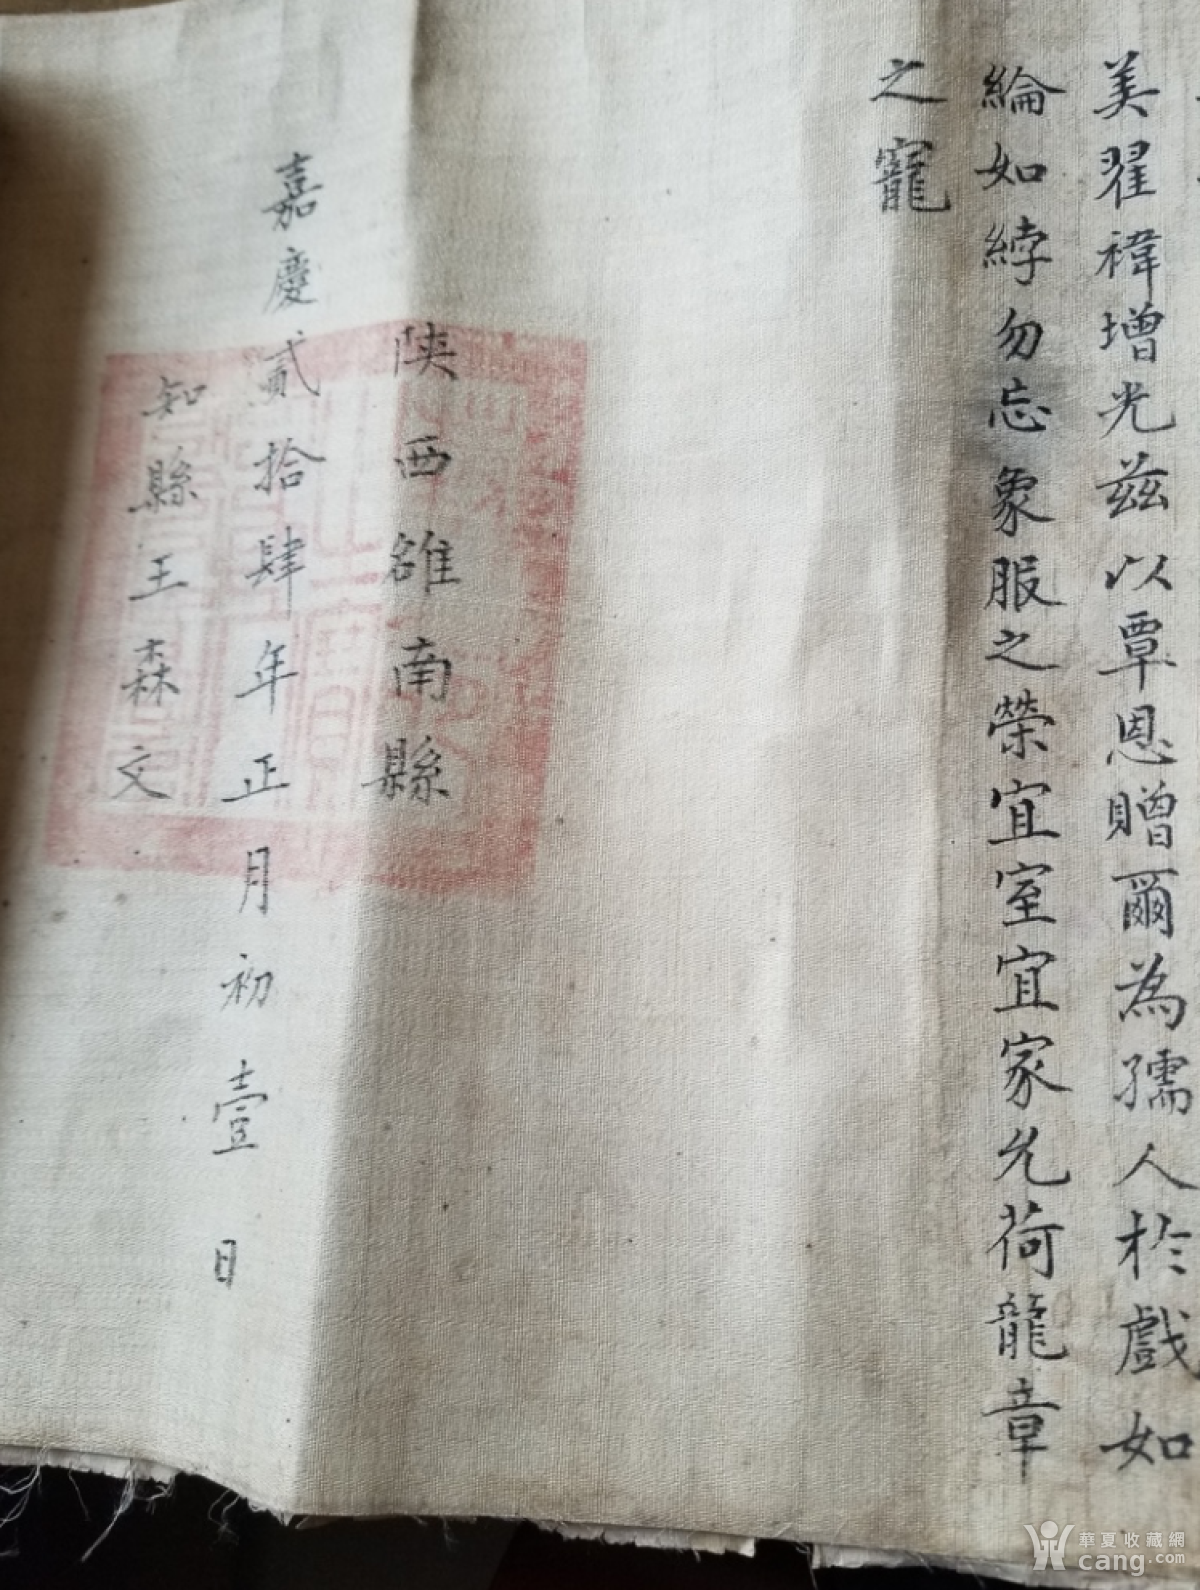 美翟褘增光茲以覃恩贈爾為孺人於戲如
綸如綍勿忘象服之榮宜室宜家允荷龍章
之寵
陝西雒南縣
嘉慶貳拾肆年正月初壹日
知縣王森文
華夏收藏網
cang.com